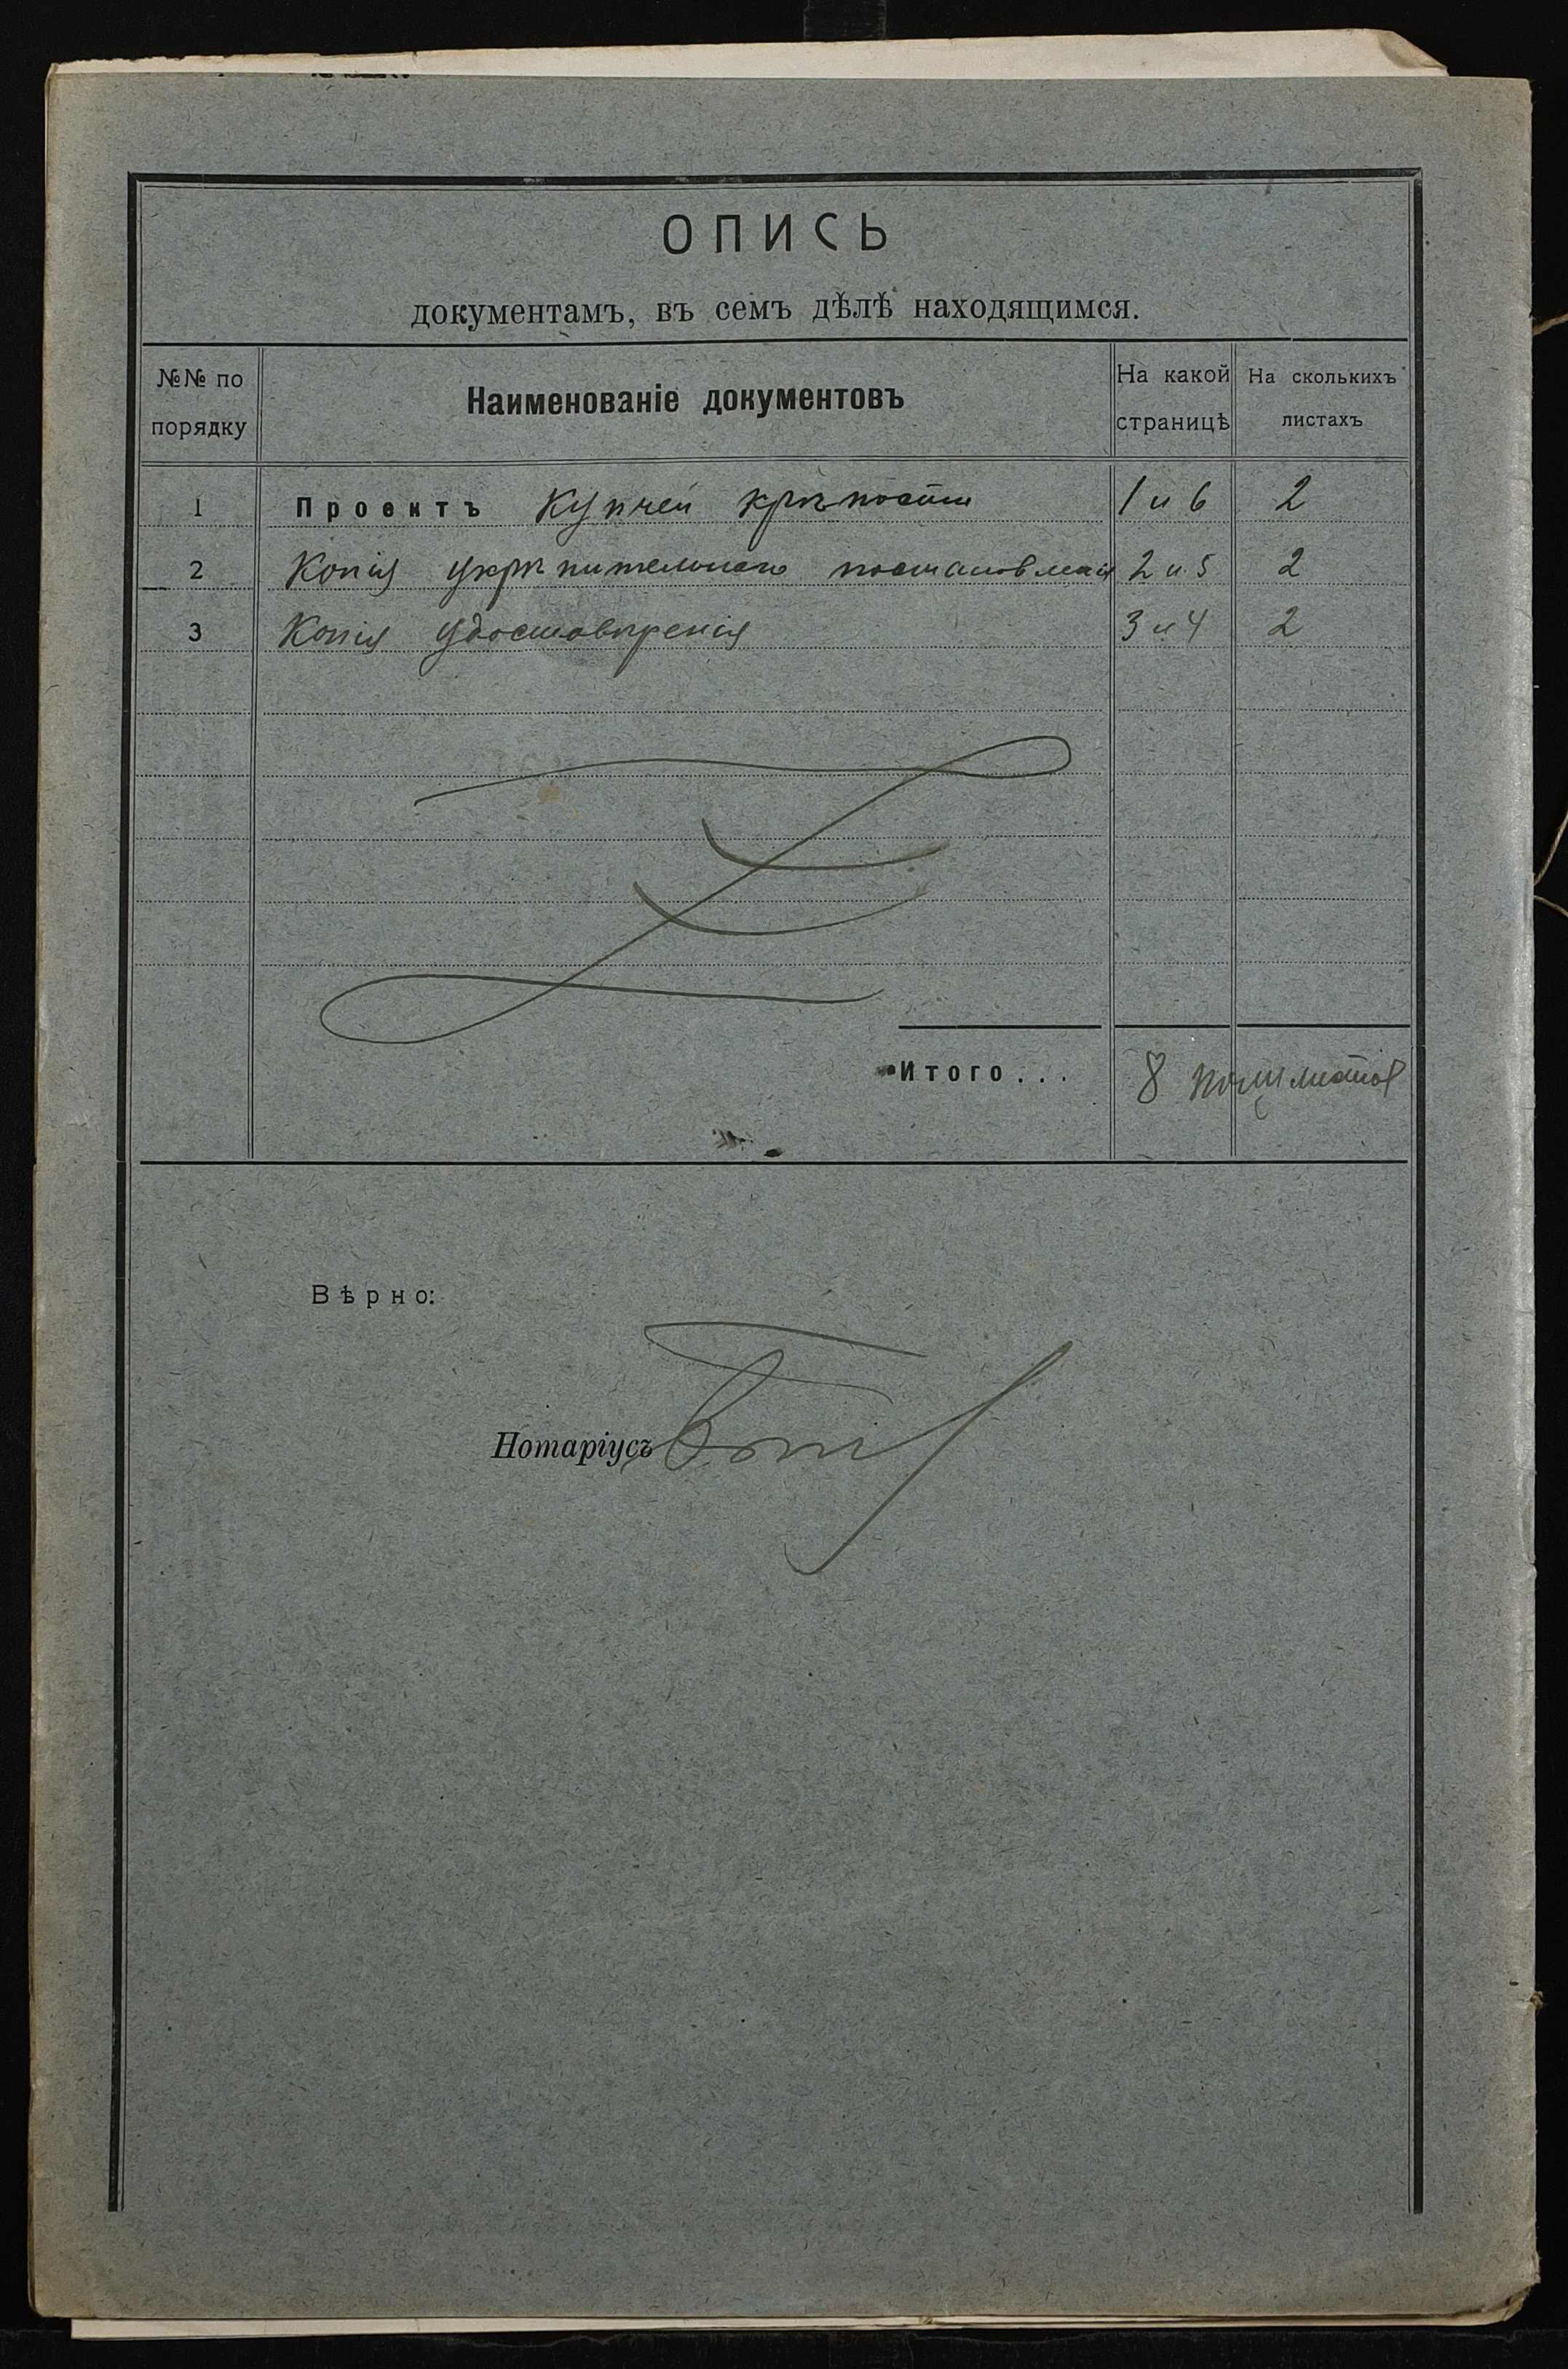 ОПИСЬ
документамъ, въ семъ дѣлѣ находящимся.
№№ по порядку
Наименованіе документовъ
На какой страницѣ
На сколькихъ листахъ
1 Проектъ Купчей крѣпости 1 и 6 2
2 Копія укрѣпительнаго постановленія 2 и 5 2
3 Копія удостовѣренія 3 и 4 2
Итого... 8
Вѣрно:
Нотаріусъ